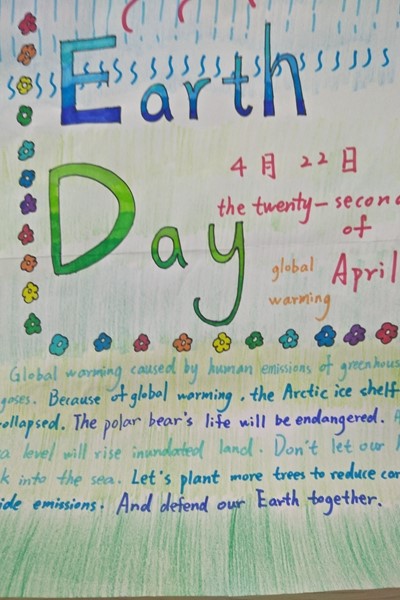 Earth
Day
4月22日
the twenty-secon
of
April
global
warming
Global warming caused by human emissions of greenhous
gases. Because of global warming. the Arctic ice shelf
ollapsed. The polar bear's life will be endangered.
a level will rise inundated land. Don't let our
k into the sea. Let's plant more trees to reduce car
ide emissions. And defend our Earth together.